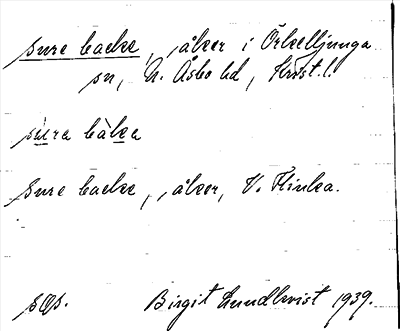 sure backe, åker i Örkelljunga
sn, N. Åsbo hd, Krist. l.
sùra bàka
Sure backe, åker, V. Flinka.
Birgit Lundkvist 1939.